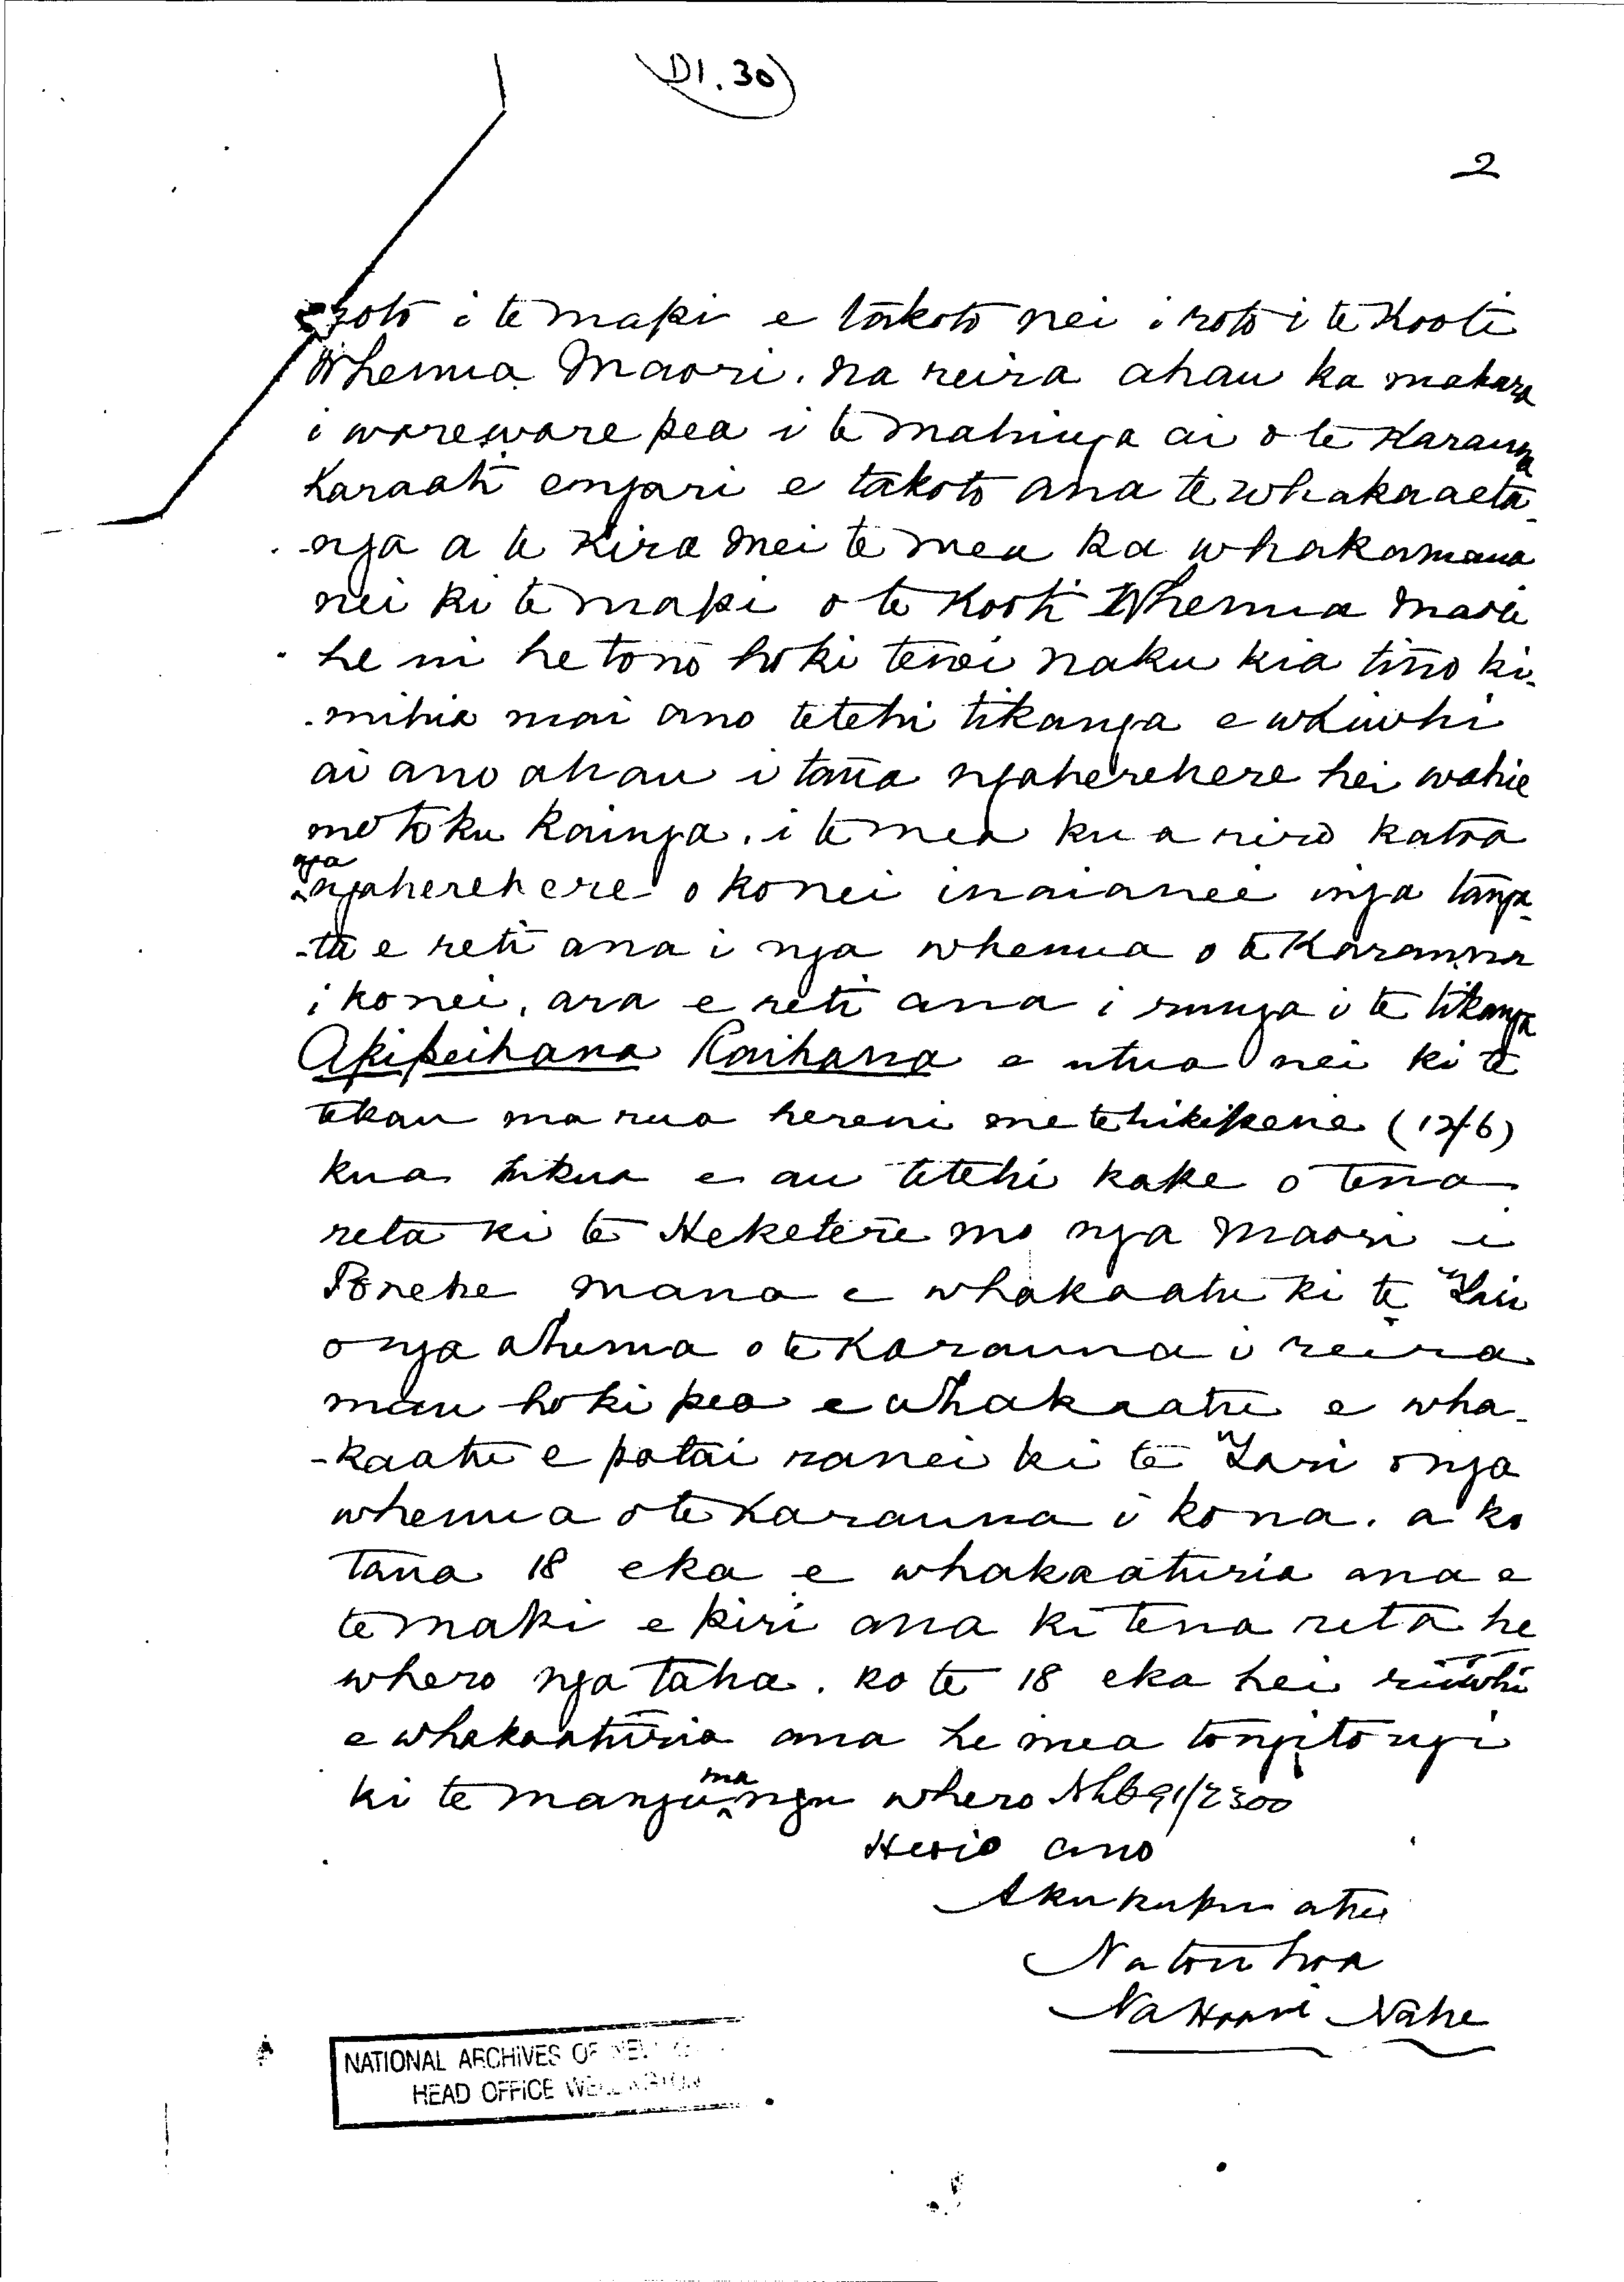 D1.30
2
roto i te mapi e takoto nei i roto i te Kooti
Whenua Maori. na reira ahau ka mahara
i wareware pea i te mahinga ai o te Karauna
Karaati engari e takoto ana te whakaaeta-
-nga a te Kira mei te mea ka whakamana
nei ki te mapi o te Kooti Whenua Maori
he oi he tono hoki tenei naku kia tino ki-
-mihia mai ano tetehi tikanga e whiwhi
ai ano ahau i taua ngaherehere hei wahie
mo toku kainga. i te mea kua riro katoa
nga
ngaherehere o konei inaianei inga tanga-
-ta e reti ana i nga whenua o te Karauna
i konei, ara e reti ana i runga i te tikanga
Akipeihana Raihana e utua nei ki te
tekau ma rua hereni me te hikipene (12/6)
kua tukua e au tetehi kape o tena
reta ki te Heketere mo nga Maori i
Poneke mana e whakaatu ki te Tari
o nga whenua o te Karauna i reira
mau hoki pea e whakaatu e wha-
-kaatu e patai ranei ki te Tari o nga
whenua o te Karauna i kona. a ko
taua 18 eka e whakaaturia ana e
te mapi e piri ana ki tena reta he
whero nga taha. ko te 18 eka hei riiwhi
e whakaaturia ana he mea tongitongi
ki te mangu ma ngu whero 91/2300
Heoio ano
Aku kupu atu
Na tou hoa
Na Hoani Nahe
NATIONAL ARCHIVES OF NEW
HEAD OFFICE WELLINGTON